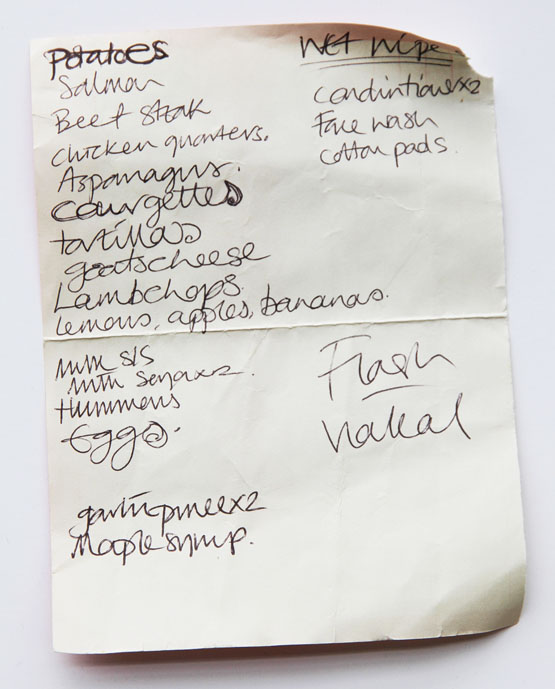 Potatoes
Salmon
Beef Steak
Chicken quarters.
Asparagus.
Courgettes
tortillas
goatscheese
Lambchops.
Lemons, apples, bananas.
milk S/S
milk
Hummous
Eggs.
x2
Maple syrup.
WET WIPE
conditioner x2
Face wash
cotton pads.
Flash